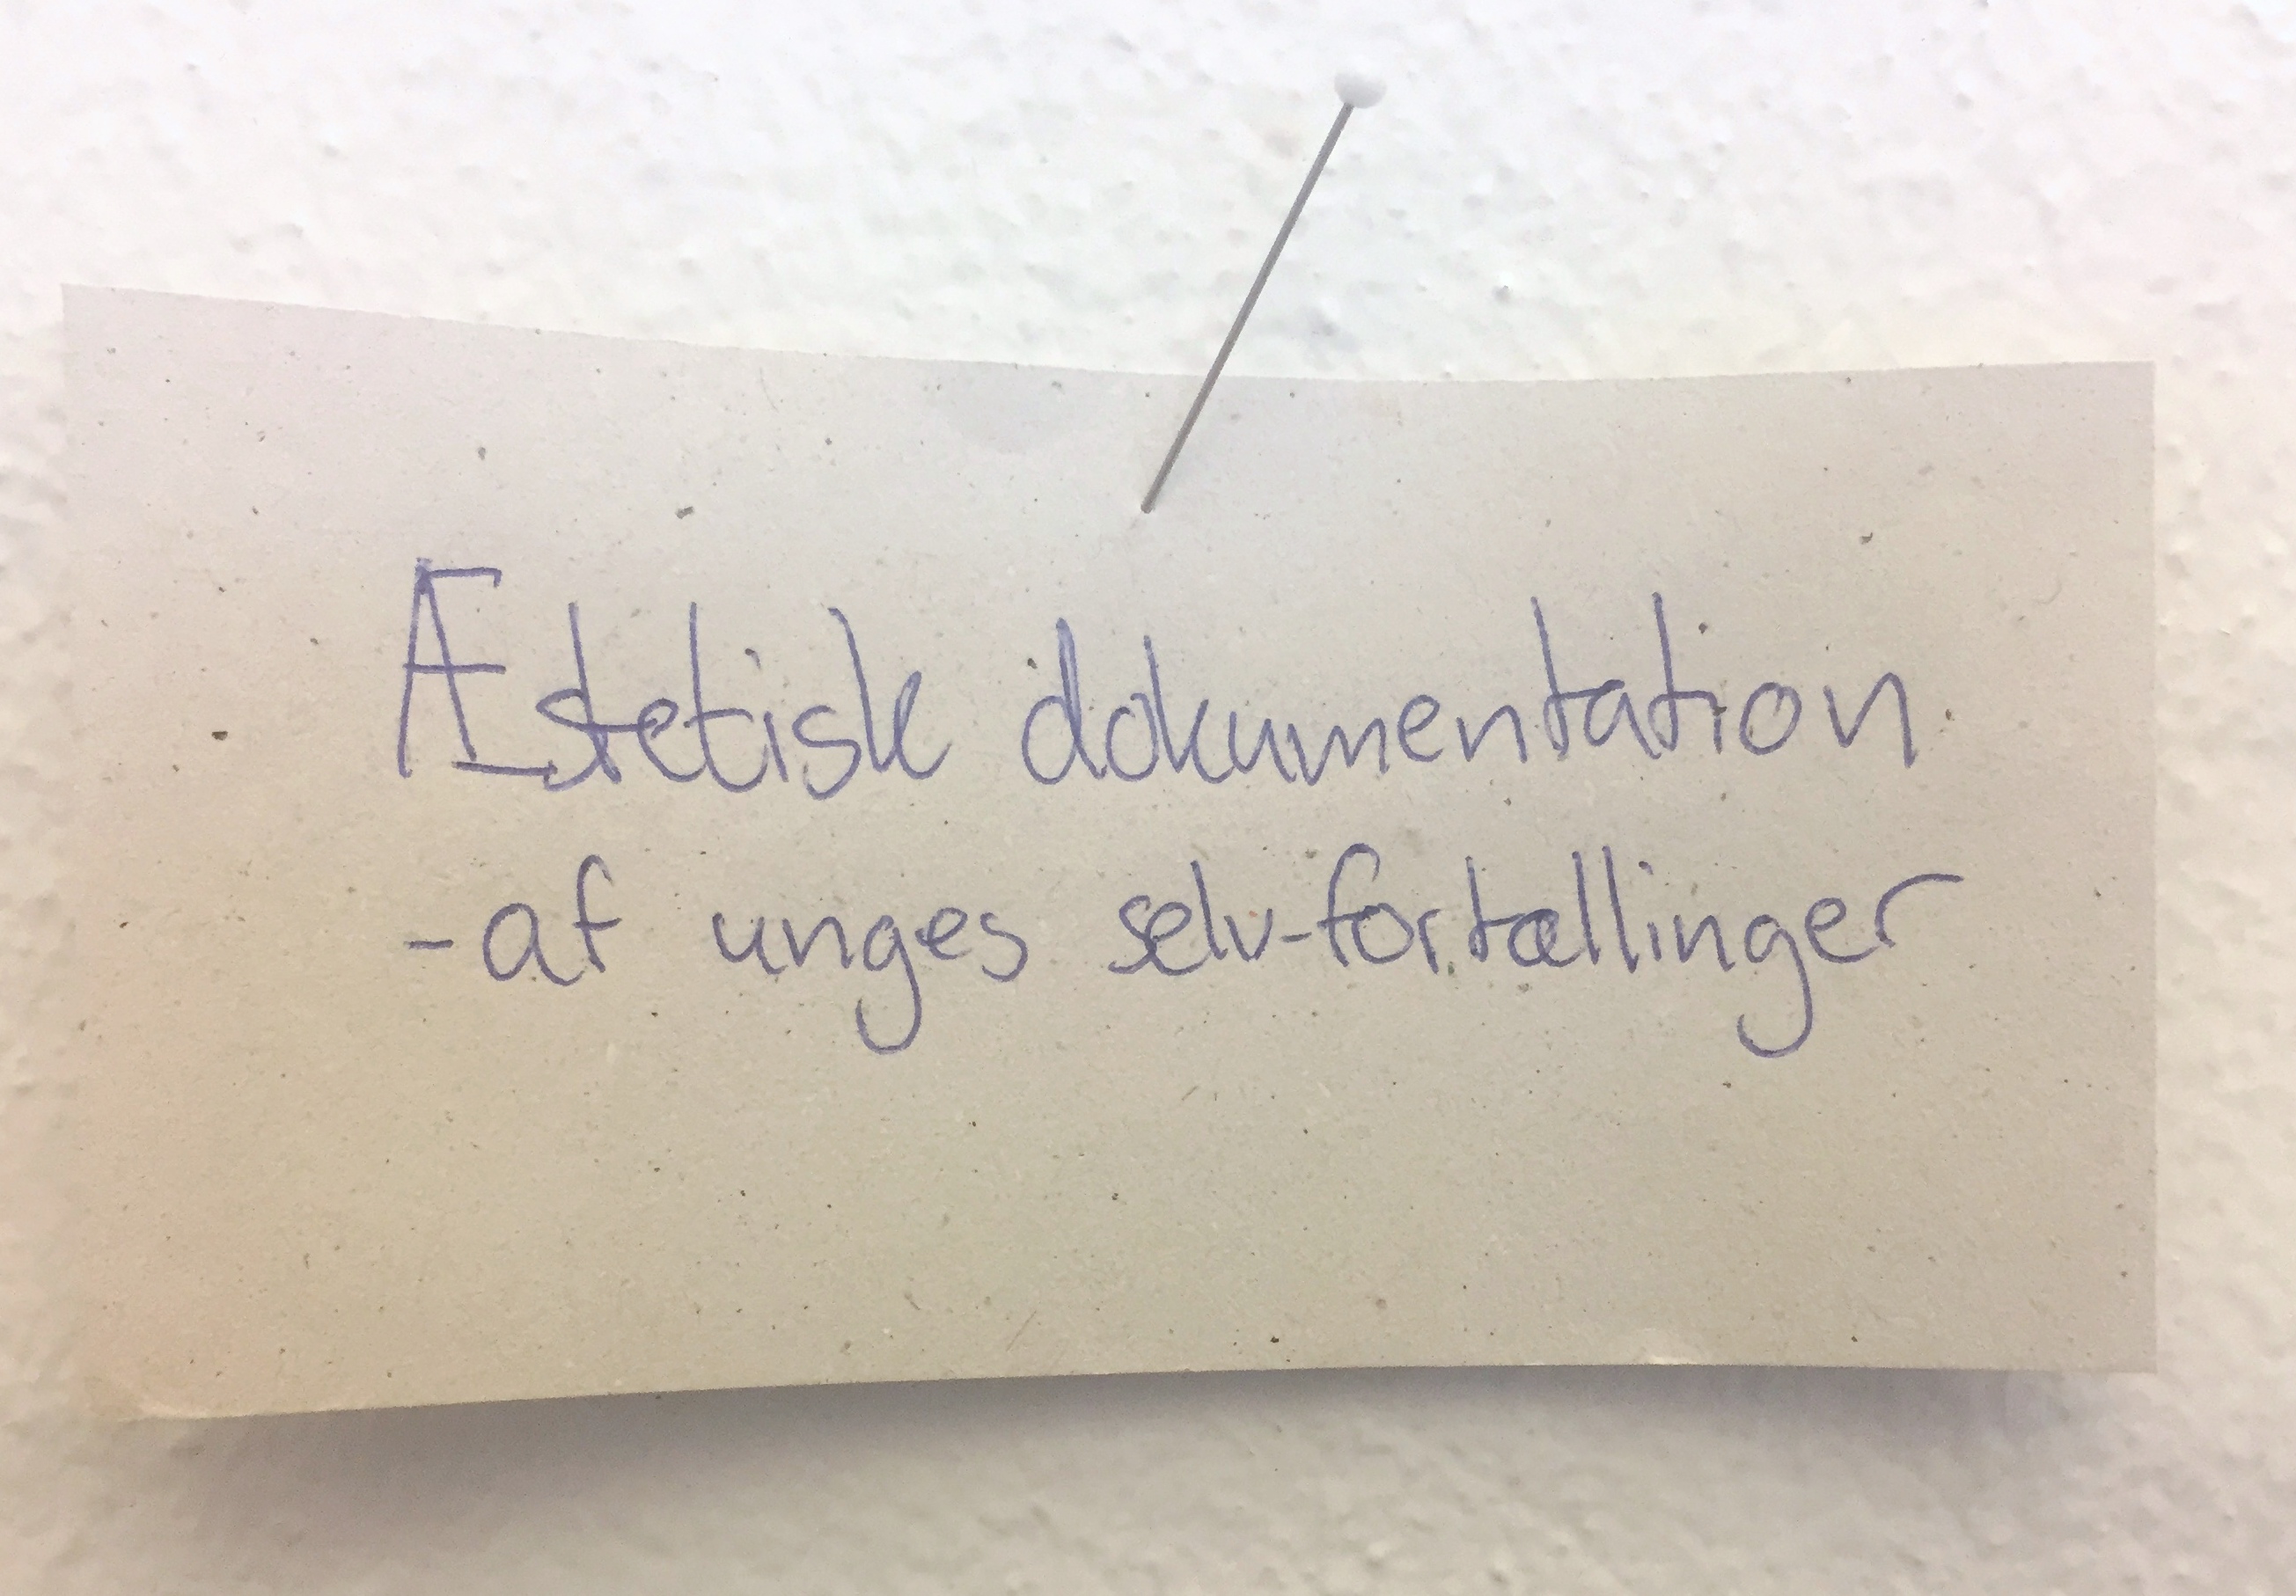 Æstetisk dokumentation
-af unges selv-fortællinger